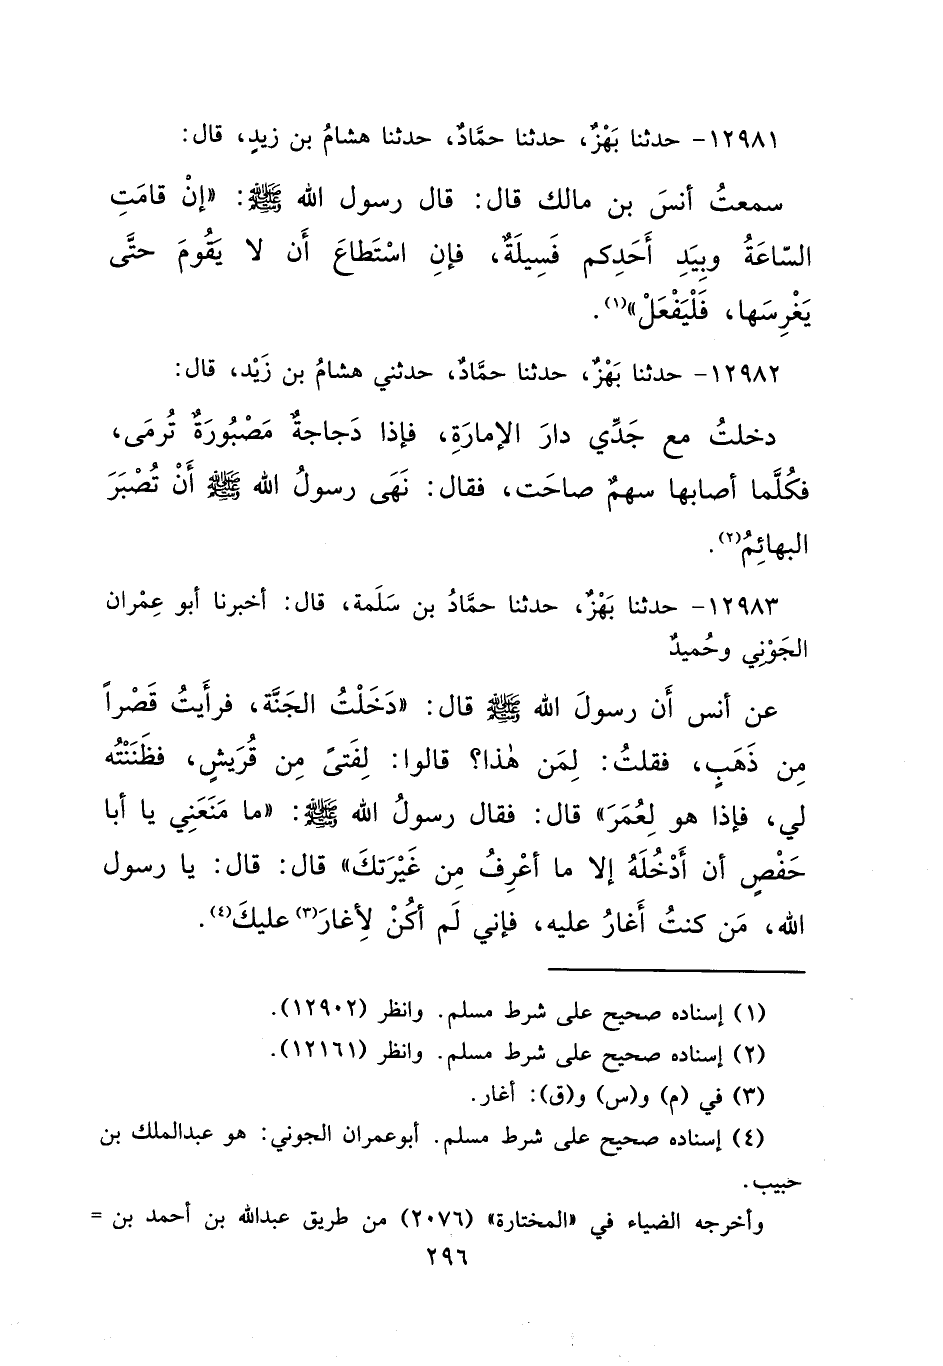 ١٢٩٨١- حدثنا بَهْزٌ، حدثنا حمَّادٌ، حدثنا هشامُ بن زيدٍ، قال:
سمعتُ أنسَ بن مالك قال: قال رسول الله ﷺ: «إنْ قامَتِ
السّاعَةُ وبِيَدِ أَحَدِكم فَسِيلَةٌ، فإنِ اسْتَطاعَ أَن لا يَقُومَ حتَّى
يَغْرِسَها، فَلْيَفْعَلْ»(١).
١٢٩٨٢- حدثنا بَهْزٌ، حدثنا حمَّادٌ، حدثني هشامُ بن زَيْد، قال:
دخلتُ مع جَدِّي دارَ الإمارَةِ، فإذا دَجاجةٌ مَصْبُورَةٌ تُرمَى،
فكُلَّما أصابها سهمٌ صاحَت، فقال: نَهَى رسولُ الله ﷺ أنْ تُصْبَرَ
البهائِمُ(٢).
١٢٩٨٣- حدثنا بَهْزٌ، حدثنا حمَّادُ بن سَلَمة، قال: أخبرنا أبو عِمْران
الجَوْنِي وحُميدٌ
عن أنس أَن رسولَ الله ﷺ قال: «دَخَلْتُ الجَنَّة، فرأَيتُ قَصْراً
مِن ذَهَبٍ، فقلتُ: لِمَن هٰذا؟ قالوا: لِفَتىً مِن قُرَيشٍ، فظَنَنْتُه
لي، فإذا هو لِعُمَرَ» قال: فقال رسولُ الله ﷺ: «ما مَنَعَنِي يا أبا
حَفْصٍ أن أَدْخُلَهُ إلا ما أعْرِفُ مِن غَيْرَتكَ» قال: قال: يا رسول
الله، مَن كنتُ أَغارُ عليه، فإني لَم أكُنْ لِأغارَ(٣) عليكَ(٤).
(١) إسناده صحيح على شرط مسلم. وانظر (١٢٩٠٢).
(٢) إسناده صحيح على شرط مسلم. وانظر (١٢١٦١).
(٣) في (م) و(س) و(ق): أغار.
(٤) إسناده صحيح على شرط مسلم. أبوعمران الجوني: هو عبدالملك بن
حبيب.
وأخرجه الضياء في «المختارة» (٢٠٧٦) من طريق عبدالله بن أحمد بن =
٢٩٦